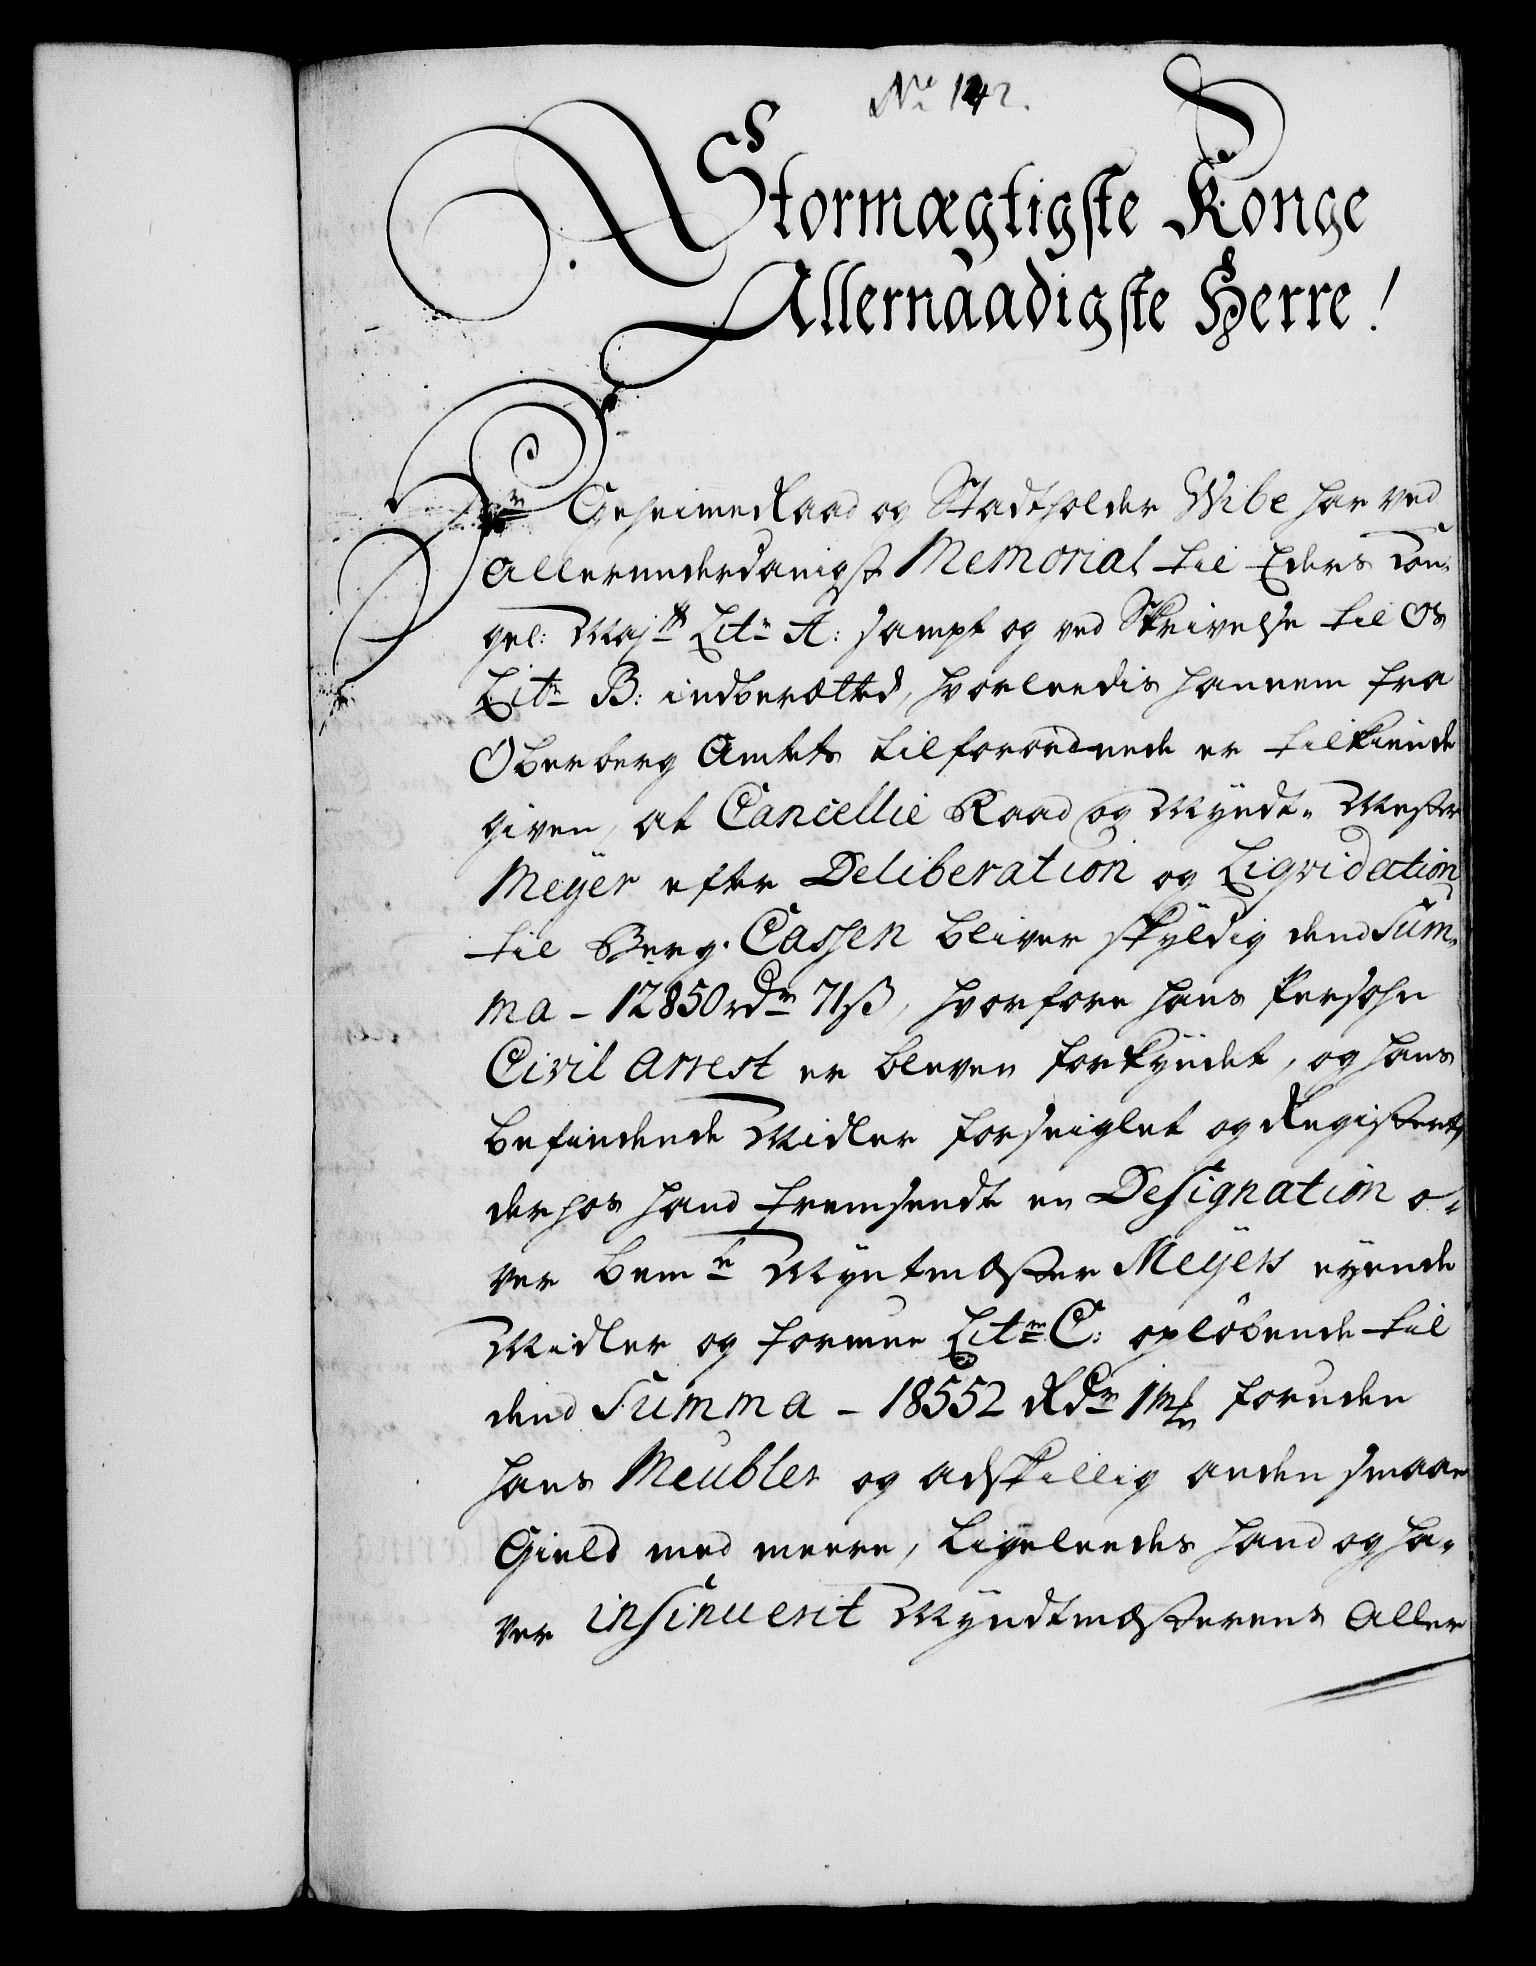 No 142.
Stormægtigste Konge
Allernaadigste Herre!
Hr Geheime Raad og Stadtholder Wibe har ved
allerunderdanigst Memorial til Eders Kon-
gel: Majts Litr A: sampt og ved Skrivelse til Os
Litr B: indberætted, hvorleedis hannem fra
Oberberg Amtets tilforordnede er tilkiende
given, at Cancellie Raad og Myndt- Mester
Meyer efter Deliberation og Liqvidation
til Berg-Cassen bliver skyldig dend Sum-
ma - 12850 rdr 71 ß, hvorfore hans Persohn
Civil Arrest er bleven forkyndet, og hans
befindende Midler forseiglet og Registeret,
derhos hand fremsendte en Designation o-
ver bemte Myntmester Meyers eyende
Midler og formue Litr C: opløbende til
dend Summa - 18552 Rdr 1 mk foruden
hans Meubler og adskillig anden smaae
Gield med meere, ligeleedes hand og ha-
ver insinuerit Myndtmesterens Aller